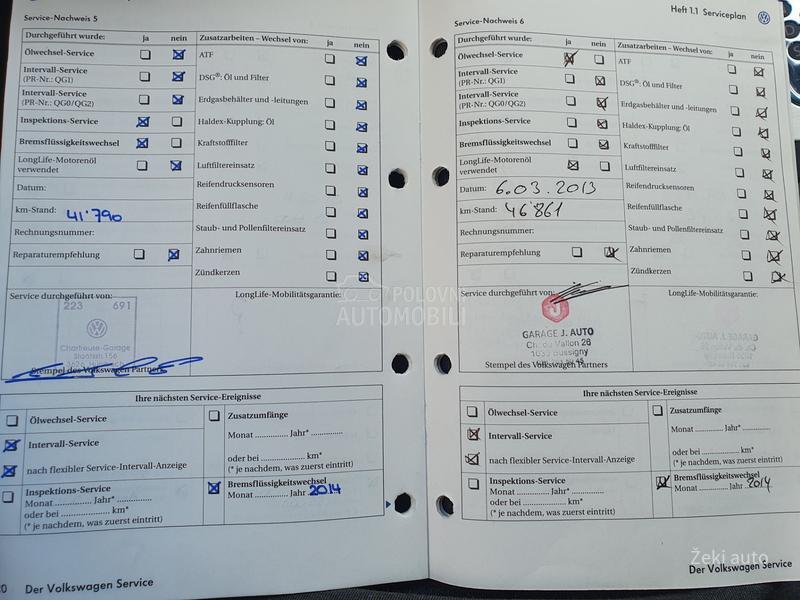 Service-Nachweis 5
Durchgeführt wurde: ja nein
Ölwechsel-Service
Intervall-Service
(PR-Nr.: QG1)
Intervall-Service
(PR-Nr.: QG0/QG2)
Inspektions-Service
Bremsflüssigkeitswechsel
LongLife-Motorenöl
verwendet
Datum:
km-Stand: 41'790
Rechnungsnummer:
Reparaturempfehlung
Zusatzarbeiten – Wechsel von: ja nein
ATF
DSG®: Öl und Filter
Erdgasbehälter und -leitungen
Haldex-Kupplung: Öl
Kraftstofffilter
Luftfiltereinsatz
Reifendrucksensoren
Reifenfüllflasche
Staub- und Pollenfiltereinsatz
Zahnriemen
Zündkerzen
Service durchgeführt von:
223 691
Chartreuse-Garage
Staatsstr. 156
Stempel des Volkswagen Partners
LongLife-Mobilitätsgarantie:
Ihre nächsten Service-Ereignisse
Ölwechsel-Service
Intervall-Service
nach flexibler Service-Intervall-Anzeige
Inspektions-Service
Monat .............. Jahr* ..............
oder bei .............. km*
(* je nachdem, was zuerst eintritt)
Zusatzumfänge
Monat .............. Jahr* ..............
oder bei .............. km*
(* je nachdem, was zuerst eintritt)
Bremsflüssigkeitswechsel
Monat .............. Jahr 2014
Der Volkswagen Service
Heft 1.1 Serviceplan
Service-Nachweis 6
Durchgeführt wurde: ja nein
Ölwechsel-Service
Intervall-Service
(PR-Nr.: QG1)
Intervall-Service
(PR-Nr.: QG0/QG2)
Inspektions-Service
Bremsflüssigkeitswechsel
LongLife-Motorenöl
verwendet
Datum: 6.03.2013
km-Stand: 46'861
Rechnungsnummer:
Reparaturempfehlung
Zusatzarbeiten – Wechsel von: ja nein
ATF
DSG®: Öl und Filter
Erdgasbehälter und -leitungen
Haldex-Kupplung: Öl
Kraftstofffilter
Luftfiltereinsatz
Reifendrucksensoren
Reifenfüllflasche
Staub- und Pollenfiltereinsatz
Zahnriemen
Zündkerzen
Service durchgeführt von:
GARAGE J. AUTO
Ch. du Vallon 26
1030 Bussigny
Stempel des Volkswagen Partners
LongLife-Mobilitätsgarantie:
Ihre nächsten Service-Ereignisse
Ölwechsel-Service
Intervall-Service
nach flexibler Service-Intervall-Anzeige
Inspektions-Service
Monat .............. Jahr* ..............
oder bei .............. km*
(* je nachdem, was zuerst eintritt)
Zusatzumfänge
Monat .............. Jahr* ..............
oder bei .............. km*
(* je nachdem, was zuerst eintritt)
Bremsflüssigkeitswechsel
Monat .............. Jahr 2014
Der Volkswagen Service
POLOVNI
AUTOMOBILI
Žeki auto